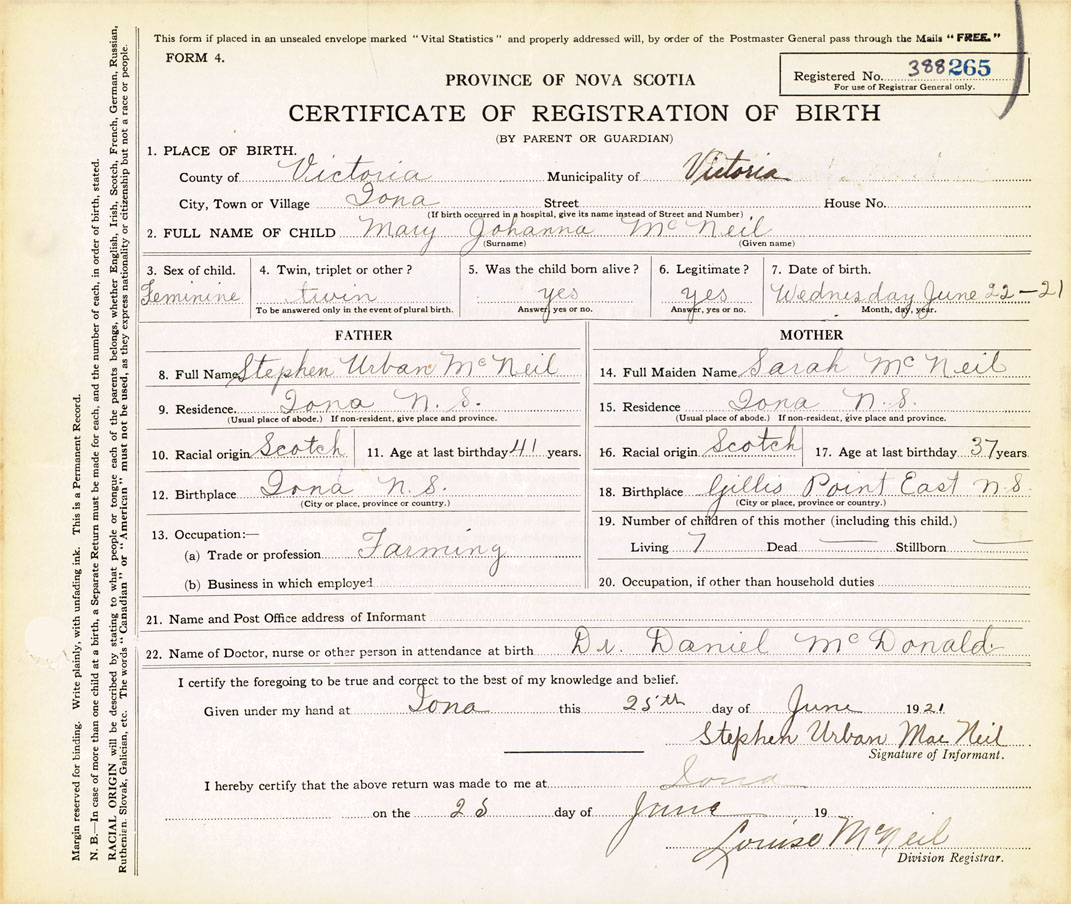 This form if placed in an unsealed envelope marked "Vital Statistics" and properly addressed will, by order of the Postmaster General pass through the Mails "FREE."
FORM 4.
Registered No. 388265
For use of Registrar General only.
PROVINCE OF NOVA SCOTIA
CERTIFICATE OF REGISTRATION OF BIRTH
(BY PARENT OR GUARDIAN)
1. PLACE OF BIRTH.
County of Victoria Municipality of Victoria
City, Town or Village Iona Street House No.
(If birth occurred in a hospital, give its name instead of Street and Number)
2. FULL NAME OF CHILD Mary Johanna McNeil
(Surname) (Given name)
3. Sex of child. 4. Twin, triplet or other? 5. Was the child born alive? 6. Legitimate? 7. Date of birth.
Feminine twin yes yes Wednesday June 22-21
To be answered only in the event of plural birth. Answer, yes or no. Answer, yes or no. Month, day, year.
FATHER
8. Full Name Stephen Urban McNeil
9. Residence. Iona N.S.
(Usual place of abode.) If non-resident, give place and province.
10. Racial origin Scotch 11. Age at last birthday 41 years.
12. Birthplace Iona N.S.
(City or place, province or country.)
13. Occupation:—
(a) Trade or profession Farming
(b) Business in which employed
MOTHER
14. Full Maiden Name Sarah McNeil
15. Residence Iona N.S.
(Usual place of abode.) If non-resident, give place and province.
16. Racial origin Scotch 17. Age at last birthday 37 years.
18. Birthplace Gillis Point East N.S.
(City or place, province or country.)
19. Number of children of this mother (including this child.)
Living 7 Dead — Stillborn —
20. Occupation, if other than household duties
21. Name and Post Office address of Informant
22. Name of Doctor, nurse or other person in attendance at birth Dr. Daniel McDonald
I certify the foregoing to be true and correct to the best of my knowledge and belief.
Given under my hand at Iona this 25th day of June 1921
Stephen Urban MacNeil
Signature of Informant.
I hereby certify that the above return was made to me at Iona
on the 25 day of June 19
Louise McNeil
Division Registrar.
Margin reserved for binding. Write plainly, with unfading ink. This is a Permanent Record.
N. B.—In case of more than one child at a birth, a Separate Return must be made for each, and the number of each, in order of birth, stated.
RACIAL ORIGIN will be described by stating to what people or tongue each of the parents belongs, whether English, Irish, Scotch, French, German, Russian,
Ruthenian, Slovak, Galician, etc. The words "Canadian" or "American" must not be used, as they express nationality or citizenship but not a race or people.